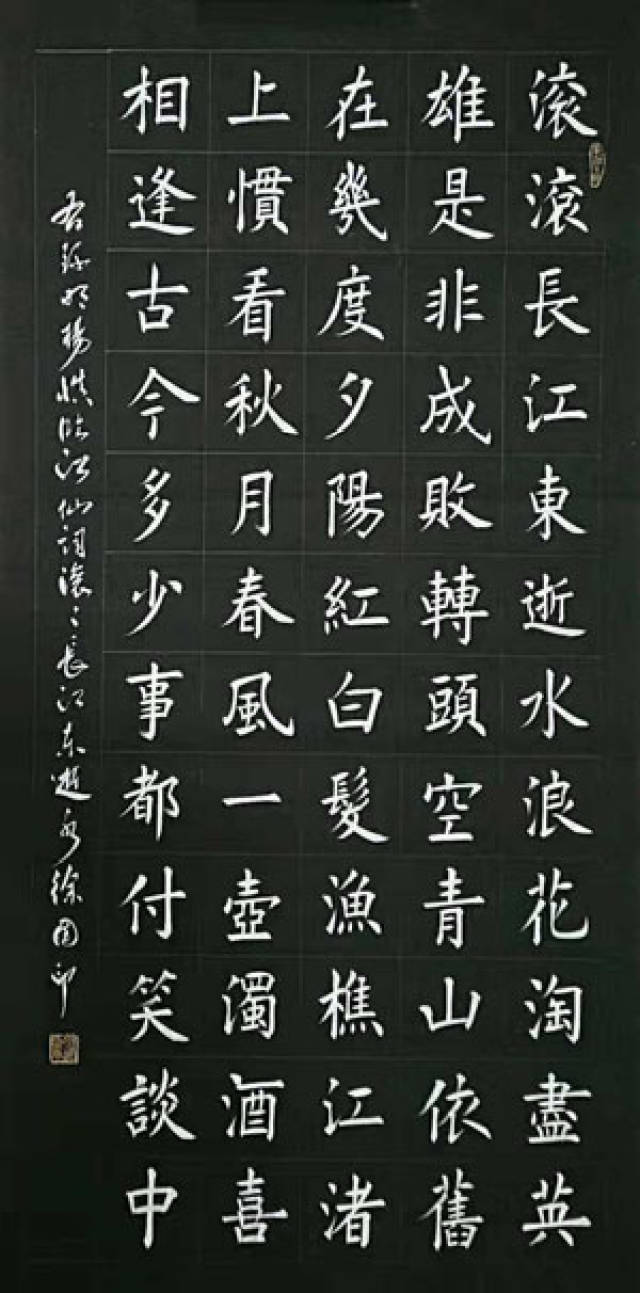 滚滚長江東逝水浪花淘盡英
雄是非成敗轉頭空青山依舊
在幾度夕陽紅白髮漁樵江渚
上慣看秋月春風一壺濁酒喜
相逢古今多少事都付笑談中
右錄明楊慎臨江仙詞滚々長江東逝水徐國印